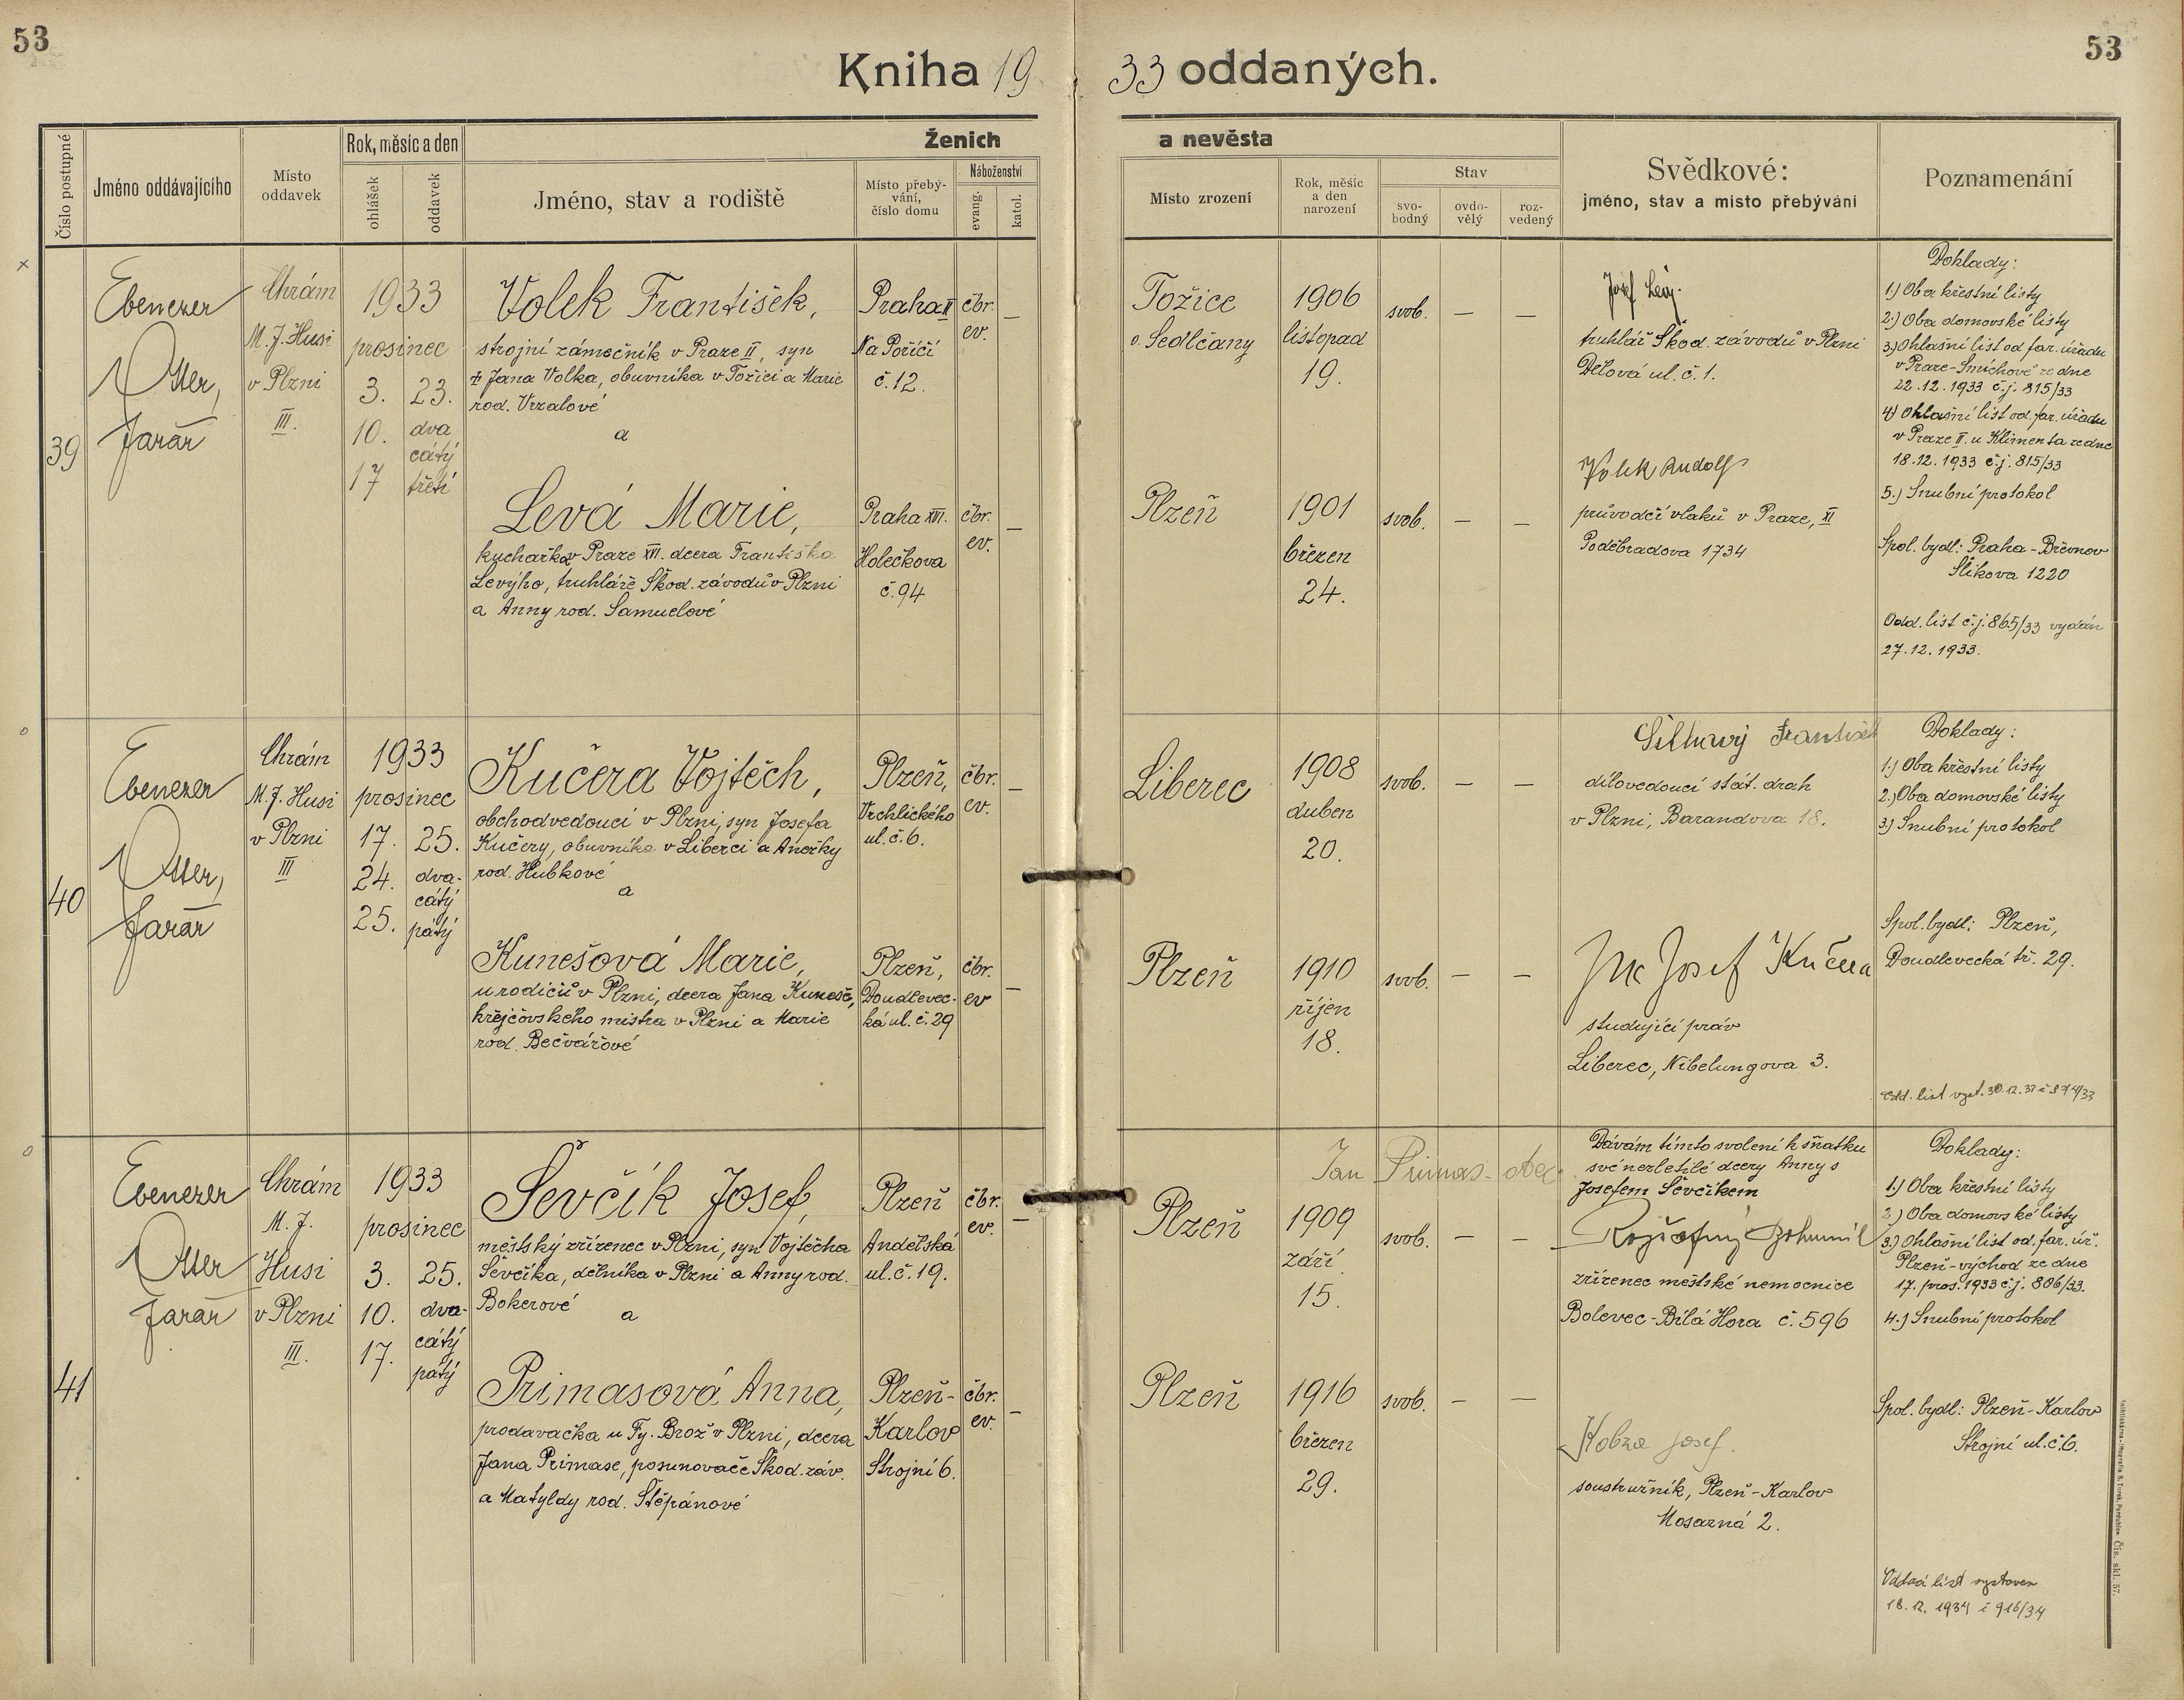 53
53
Kniha 19
33 oddaných.
Číslo postupné
Jméno oddávajícího
Místo
oddavek
Rok, měsíc a den
ohlášek
oddavek
Ženich
Jméno, stav a rodiště
Místo přebý-
vání,
číslo domu
Náboženství
evang.
katol.
a nevěsta
Místo zrození
Rok, měsíc
a den
narození
Stav
svo-
bodný
ovdo-
vělý
roz-
vedený
Svědkové:
jméno, stav a místo přebývání
Poznamenání
39
Ebenezer
Otter,
farář
Chrám
M. J. Husi
v Plzni
III.
1933
prosinec
3.
10.
17
23.
dva
cátý
třetí
Volek František,
strojní zámečník v Praze II, syn
‡ Jana Volka, obuvníka v Tožici a Marie
rod. Vrzalové
a
Praha II
Na Poříčí
č. 12.
čbr.
ev.
—
Tožice
o. Sedlčany
1906
listopad
19.
svob.
—
—
Josef Levý.
truhlář Škod. závodů v Plzni
Dělová ul. č. 1.
Levá Marie,
kuchařka v Praze XVI. dcera Františka
Levýho, truhláře Škod. závodů v Plzni
a Anny rod. Samuelové
Praha XVI.
Holečkova
č. 94
čbr.
ev.
—
Plzeň
1901
březen
24.
svob.
—
—
Volek Rudolf
průvodčí vlaků v Praze, XI
Poděbradova 1734
Doklady:
1.) Oba křestní listy
2.) Oba domovské listy
3.) Ohlašní list od far. úřadu
v Praze-Smíchově ze dne
22.12.1933 č.j. 815/33
4.) Ohlašní list od far. úřadu
v Praze II. u Klimenta ze dne
18.12.1933 č.j. 815/33
5.) Snubní protokol
Spol. bydl: Praha-Břevnov
Šlikova 1220
Odd. list č.j. 865/33 vydán
27.12.1933.
40
Ebenezer
Otter,
farář
Chrám
M. J. Husi
v Plzni
III
1933
prosinec
17.
24.
25.
25.
dva-
cátý
pátý
Kučera Vojtěch,
obchodvedoucí v Plzni, syn Josefa
Kučery, obuvníka v Liberci a Anežky
rod. Hubkové
a
Plzeň,
Vrchlického
ul. č. 6.
čbr.
ev.
—
Liberec
1908
duben
20.
svob.
—
—
Šilhavý František
dílovedoucí stát. drah
v Plzni, Barandova 18.
Kunešová Marie,
u rodičů v Plzni, dcera Jana Kuneše,
krejčovského mistra v Plzni a Marie
rod. Bečvářové
Plzeň,
Doudlevec-
ká ul. č. 29
čbr.
ev
—
Plzeň
1910
říjen
18.
svob.
—
—
Josef Kučera
studující práv
Liberec, Nibelungova 3.
Doklady:
1.) Oba křestní listy
2.) Oba domovské listy
3.) Snubní protokol
Spol. bydl: Plzeň,
Doudlevecká tř. 29.
Odd. list vyst. 30.12.
41
Ebenezer
Otter
farář
Chrám
M. J.
Husi
v Plzni
III.
1933
prosinec
3.
10.
17.
25.
dva-
cátý
pátý
Ševčík Josef,
městský zřízenec v Plzni, syn Vojtěcha
Ševčíka, dělníka v Plzni a Anny rod.
Bokerové
a
Plzeň
Andělská
ul. č. 19.
čbr.
ev.
—
Jan Primas - otec
Plzeň
1909
září
15.
svob.
—
—
Dávám tímto svolení k sňatku
své nezletilé dcery Anny s
Josefem Ševčíkem
Bohumil
zřízenec městské nemocnice
Bolevec-Bílá Hora č. 596
Primasová Anna,
prodavačka u Fy. Brož v Plzni, dcera
Jana Primase, posunovače Škod. záv.
a Matyldy rod. Štěpánové
Plzeň-
Karlov
Strojní 6.
čbr.
ev.
—
Plzeň
1916
březen
29.
svob.
—
—
Kobza Josef.
soustružník, Plzeň-Karlov
Mosazná 2.
Doklady:
1.) Oba křestní listy
2.) Oba domovské listy
3.) Ohlašní list od. far. úř.
Plzeň-východ ze dne
17. pros. 1933 č.j. 806/33.
4.) Snubní protokol
Spol. bydl: Plzeň-Karlov
Strojní ul. č. 6.
Oddací list vystaven
18.12.1934 č 916/34
Čís. skl. 57.